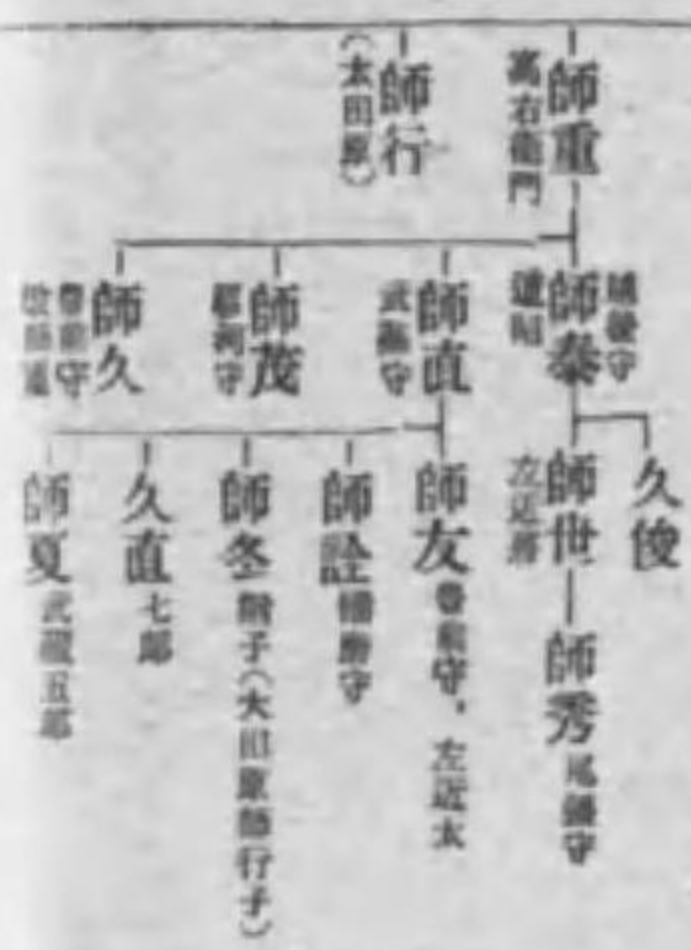 師重
高右衞門
師行
(太田原)
越後守
師泰
道昭
師直
武藏守
師茂
駿河守
師久
豊前守
久俊
師世
左近將
師秀 尾張守
師友 豊前守、左近太
師詮
師冬 猶子(大田原師行子)
久直 七郎
師夏 武藏五郎